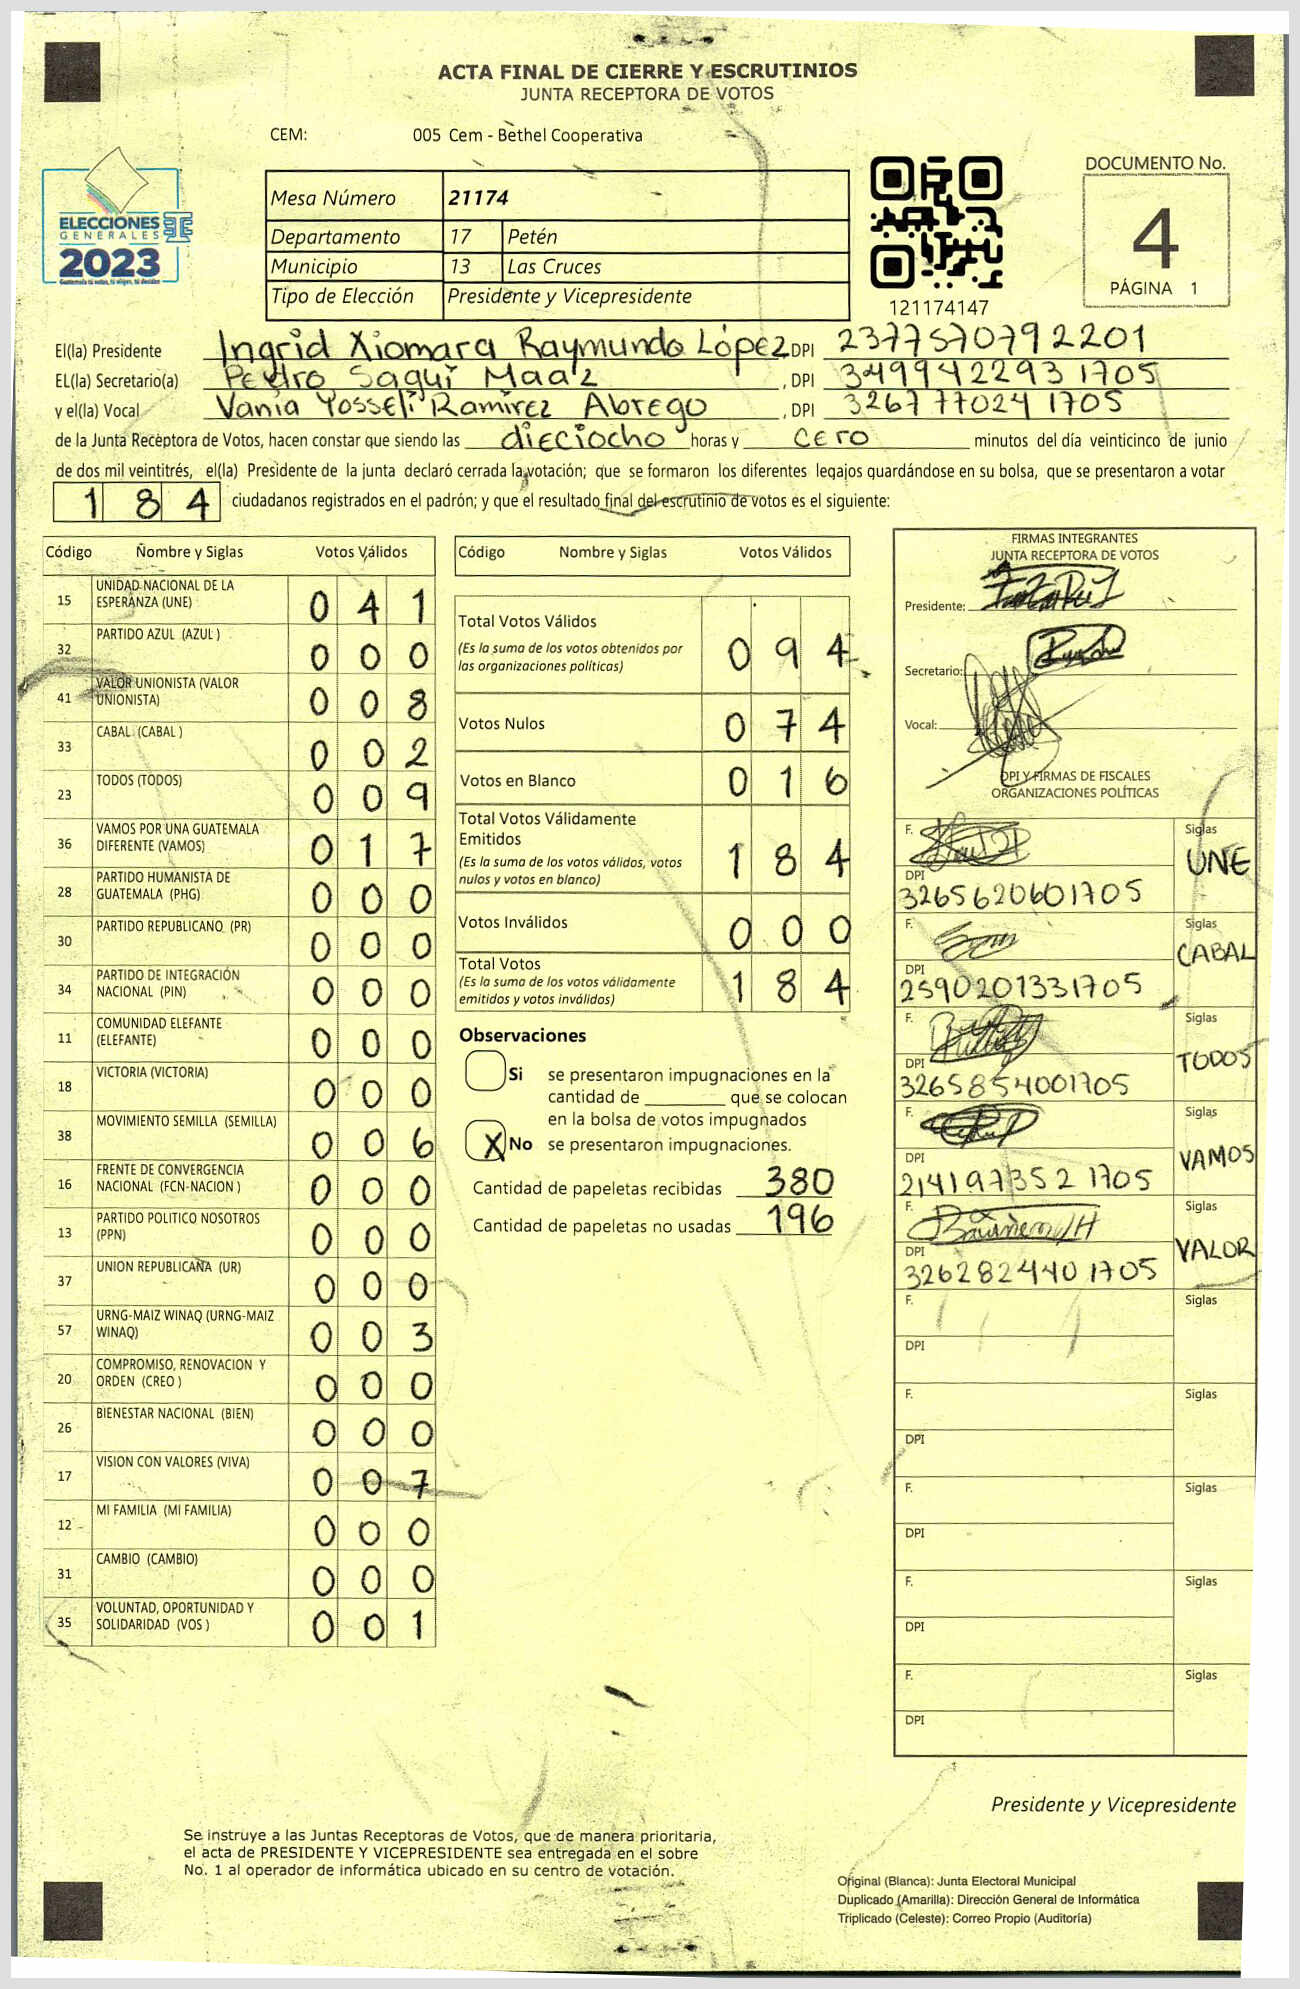 ACTA FINAL DE CIERRE Y ESCRUTINIOS
JUNTA RECEPTORA DE VOTOS
CEM: 005 Cem - Bethel Cooperativa
ELECCIONES
GENERALES
2023
Guatemala tú votas, tú eliges, tú decides
Mesa Número 21174
Departamento 17 Petén
Municipio 13 Las Cruces
Tipo de Elección Presidente y Vicepresidente
121174147
DOCUMENTO No.
4
PÁGINA 1
El(la) Presidente Ingrid Xiomara Raymundo López DPI 2377570792201
EL(la) Secretario(a) Pedro Saquí Maaz , DPI 3499942293 1705
y el(la) Vocal Vania Yosseli Ramírez Abrego , DPI 3267 77024 1705
de la Junta Receptora de Votos, hacen constar que siendo las dieciocho horas y cero minutos del día veinticinco de junio
de dos mil veintitrés, el(la) Presidente de la junta declaró cerrada la votación; que se formaron los diferentes legajos guardándose en su bolsa, que se presentaron a votar
184 ciudadanos registrados en el padrón; y que el resultado final del escrutinio de votos es el siguiente:
Código Nombre y Siglas Votos Válidos
15 UNIDAD NACIONAL DE LA ESPERANZA (UNE) 0 4 1
32 PARTIDO AZUL (AZUL ) 0 0 0
41 VALOR UNIONISTA (VALOR UNIONISTA) 0 0 8
33 CABAL (CABAL ) 0 0 2
23 TODOS (TODOS) 0 0 9
36 VAMOS POR UNA GUATEMALA DIFERENTE (VAMOS) 0 1 7
28 PARTIDO HUMANISTA DE GUATEMALA (PHG) 0 0 0
30 PARTIDO REPUBLICANO (PR) 0 0 0
34 PARTIDO DE INTEGRACIÓN NACIONAL (PIN) 0 0 0
11 COMUNIDAD ELEFANTE (ELEFANTE) 0 0 0
18 VICTORIA (VICTORIA) 0 0 0
38 MOVIMIENTO SEMILLA (SEMILLA) 0 0 6
16 FRENTE DE CONVERGENCIA NACIONAL (FCN-NACION ) 0 0 0
13 PARTIDO POLITICO NOSOTROS (PPN) 0 0 0
37 UNION REPUBLICANA (UR) 0 0 0
57 URNG-MAIZ WINAQ (URNG-MAIZ WINAQ) 0 0 3
20 COMPROMISO, RENOVACION Y ORDEN (CREO ) 0 0 0
26 BIENESTAR NACIONAL (BIEN) 0 0 0
17 VISION CON VALORES (VIVA) 0 0 7
12 MI FAMILIA (MI FAMILIA) 0 0 0
31 CAMBIO (CAMBIO) 0 0 0
35 VOLUNTAD, OPORTUNIDAD Y SOLIDARIDAD (VOS ) 0 0 1
Código Nombre y Siglas Votos Válidos
Total Votos Válidos 0 9 4
(Es la suma de los votos obtenidos por
las organizaciones políticas)
Votos Nulos 0 7 4
Votos en Blanco 0 1 6
Total Votos Válidamente
Emitidos 1 8 4
(Es la suma de los votos válidos, votos
nulos y votos en blanco)
Votos Inválidos 0 0 0
Total Votos 1 8 4
(Es la suma de los votos válidamente
emitidos y votos inválidos)
Observaciones
Si se presentaron impugnaciones en la
cantidad de ________ que se colocan
en la bolsa de votos impugnados
X No se presentaron impugnaciones.
Cantidad de papeletas recibidas 380
Cantidad de papeletas no usadas 196
FIRMAS INTEGRANTES
JUNTA RECEPTORA DE VOTOS
Presidente:
Secretario:
Vocal:
DPI Y FIRMAS DE FISCALES
ORGANIZACIONES POLÍTICAS
F. Siglas UNE
DPI
3265620601705
F. Siglas CABAL
DPI
2590201331705
F. Siglas TODOS
DPI
3265854001705
F. Siglas VAMOS
DPI
214197352 1705
F. Siglas VALOR
DPI
326282440 1705
F. Siglas
DPI
F. Siglas
DPI
F. Siglas
DPI
F. Siglas
DPI
F. Siglas
DPI
Presidente y Vicepresidente
Se instruye a las Juntas Receptoras de Votos, que de manera prioritaria,
el acta de PRESIDENTE Y VICEPRESIDENTE sea entregada en el sobre
No. 1 al operador de informática ubicado en su centro de votación.
Original (Blanca): Junta Electoral Municipal
Duplicado (Amarilla): Dirección General de Informática
Triplicado (Celeste): Correo Propio (Auditoría)